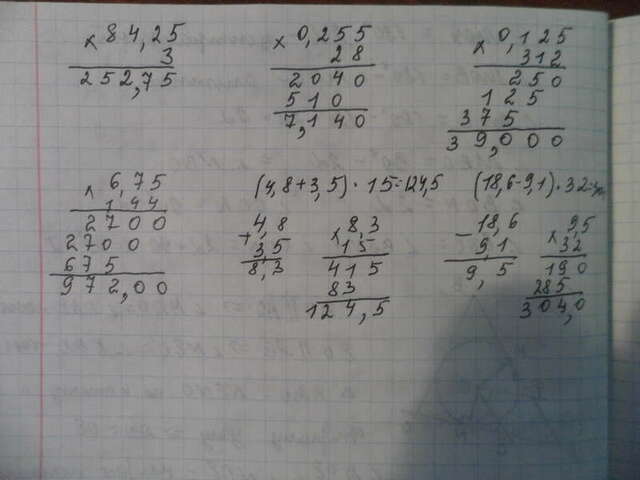 × 84,25
3
252,75
× 0,255
28
2040
510
7,140
× 0,125
312
250
125
375
39,000
× 6,75
144
2700
2700
675
972,00
(4,8+3,5)·15=124,5
+ 4,8
3,5
8,3
× 8,3
15
415
83
124,5
(18,6-9,1)·32=
- 18,6
9,1
9,5
× 9,5
32
190
285
304,0